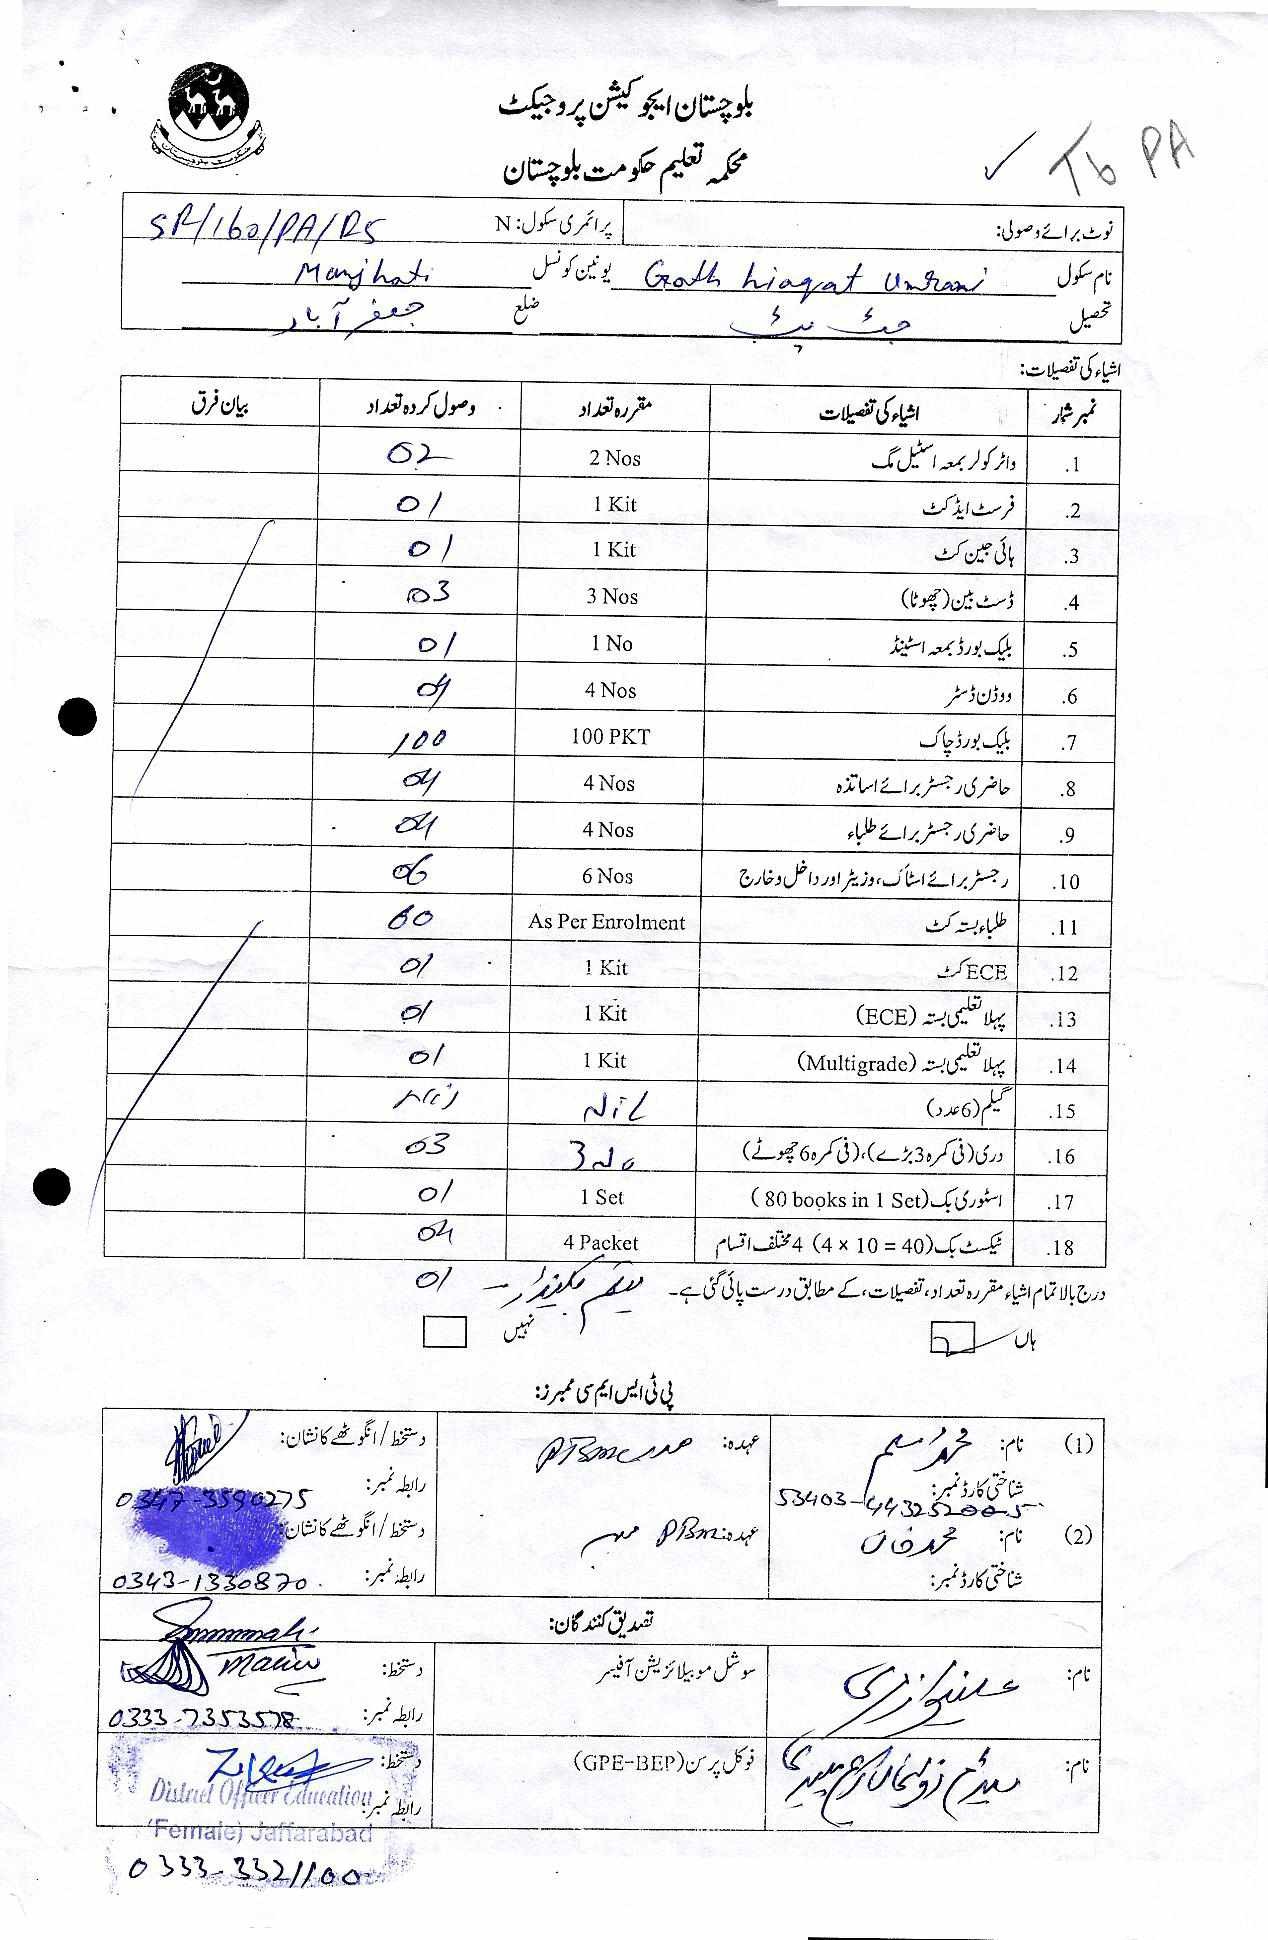 بلوچستان ایجوکیشن پروجیکٹ
محکمہ تعلیم حکومت بلوچستان
Tb PA
نوٹ برائے وصولی: پرائمری سکول: N SR/160/PA/RS
نام سکول Goth Liaqat Umrani یونین کونسل Manjhoti
تحصیل جھٹ پٹ ضلع جعفر آباد
اشیاء کی تفصیلات:
نمبر شمار اشیاء کی تفصیلات مقررہ تعداد وصول کردہ تعداد بیان فرق
1. واٹر کولر بمعہ اسٹیل مگ 2 Nos 02
2. فرسٹ ایڈ کٹ 1 Kit 01
3. ہائی جین کٹ 1 Kit 01
4. ڈسٹ بین (چھوٹا) 3 Nos 03
5. بلیک بورڈ بمعہ اسٹینڈ 1 No 01
6. ووڈن ڈسٹر 4 Nos 04
7. بلیک بورڈ چاک 100 PKT 100
8. حاضری رجسٹر برائے اساتذہ 4 Nos 04
9. حاضری رجسٹر برائے طلباء 4 Nos 04
10. رجسٹر برائے اسٹاک، وزیٹر اور داخل و خارج 6 Nos 06
11. طلباء بستہ کٹ As Per Enrolment 60
12. ECE کٹ 1 Kit 01
13. پہلا تعلیمی بستہ (ECE) 1 Kit 01
14. پہلا تعلیمی بستہ (Multigrade) 1 Kit 01
15. گیلم (6 عدد) Nil Nil
16. دری (فی کمرہ 3 بڑے)، (فی کمرہ 6 چھوٹے) 3 No 03
17. اسٹوری بک (80 books in 1 Set) 1 Set 01
18. ٹیکسٹ بک (4 × 10 = 40) 4 مختلف اقسام 4 Packet 04
درج بالا تمام اشیاء مقررہ تعداد، تفصیلات، کے مطابق درست پائی گئی ہے۔ 01
ہاں نہیں
پی ٹی ایس ایم سی ممبرز:
(1) نام: محمد سلیم عہدہ: صدر PTSMC دستخط / انگوٹھے کا نشان:
شناختی کارڈ نمبر: 53403-4432520-5 رابطہ نمبر: 0347-3590275
(2) نام: محمد خان عہدہ: دستخط / انگوٹھے کا نشان:
شناختی کارڈ نمبر: رابطہ نمبر: 0343-1330870
تصدیق کنندگان:
نام: سوشل موبیلائزیشن آفیسر دستخط:
رابطہ نمبر: 0333-7353578
نام: فوکل پرسن (GPE-BEP) دستخط:
رابطہ نمبر:
District Officer Education
(Female) Jaffarabad
0333-3321100